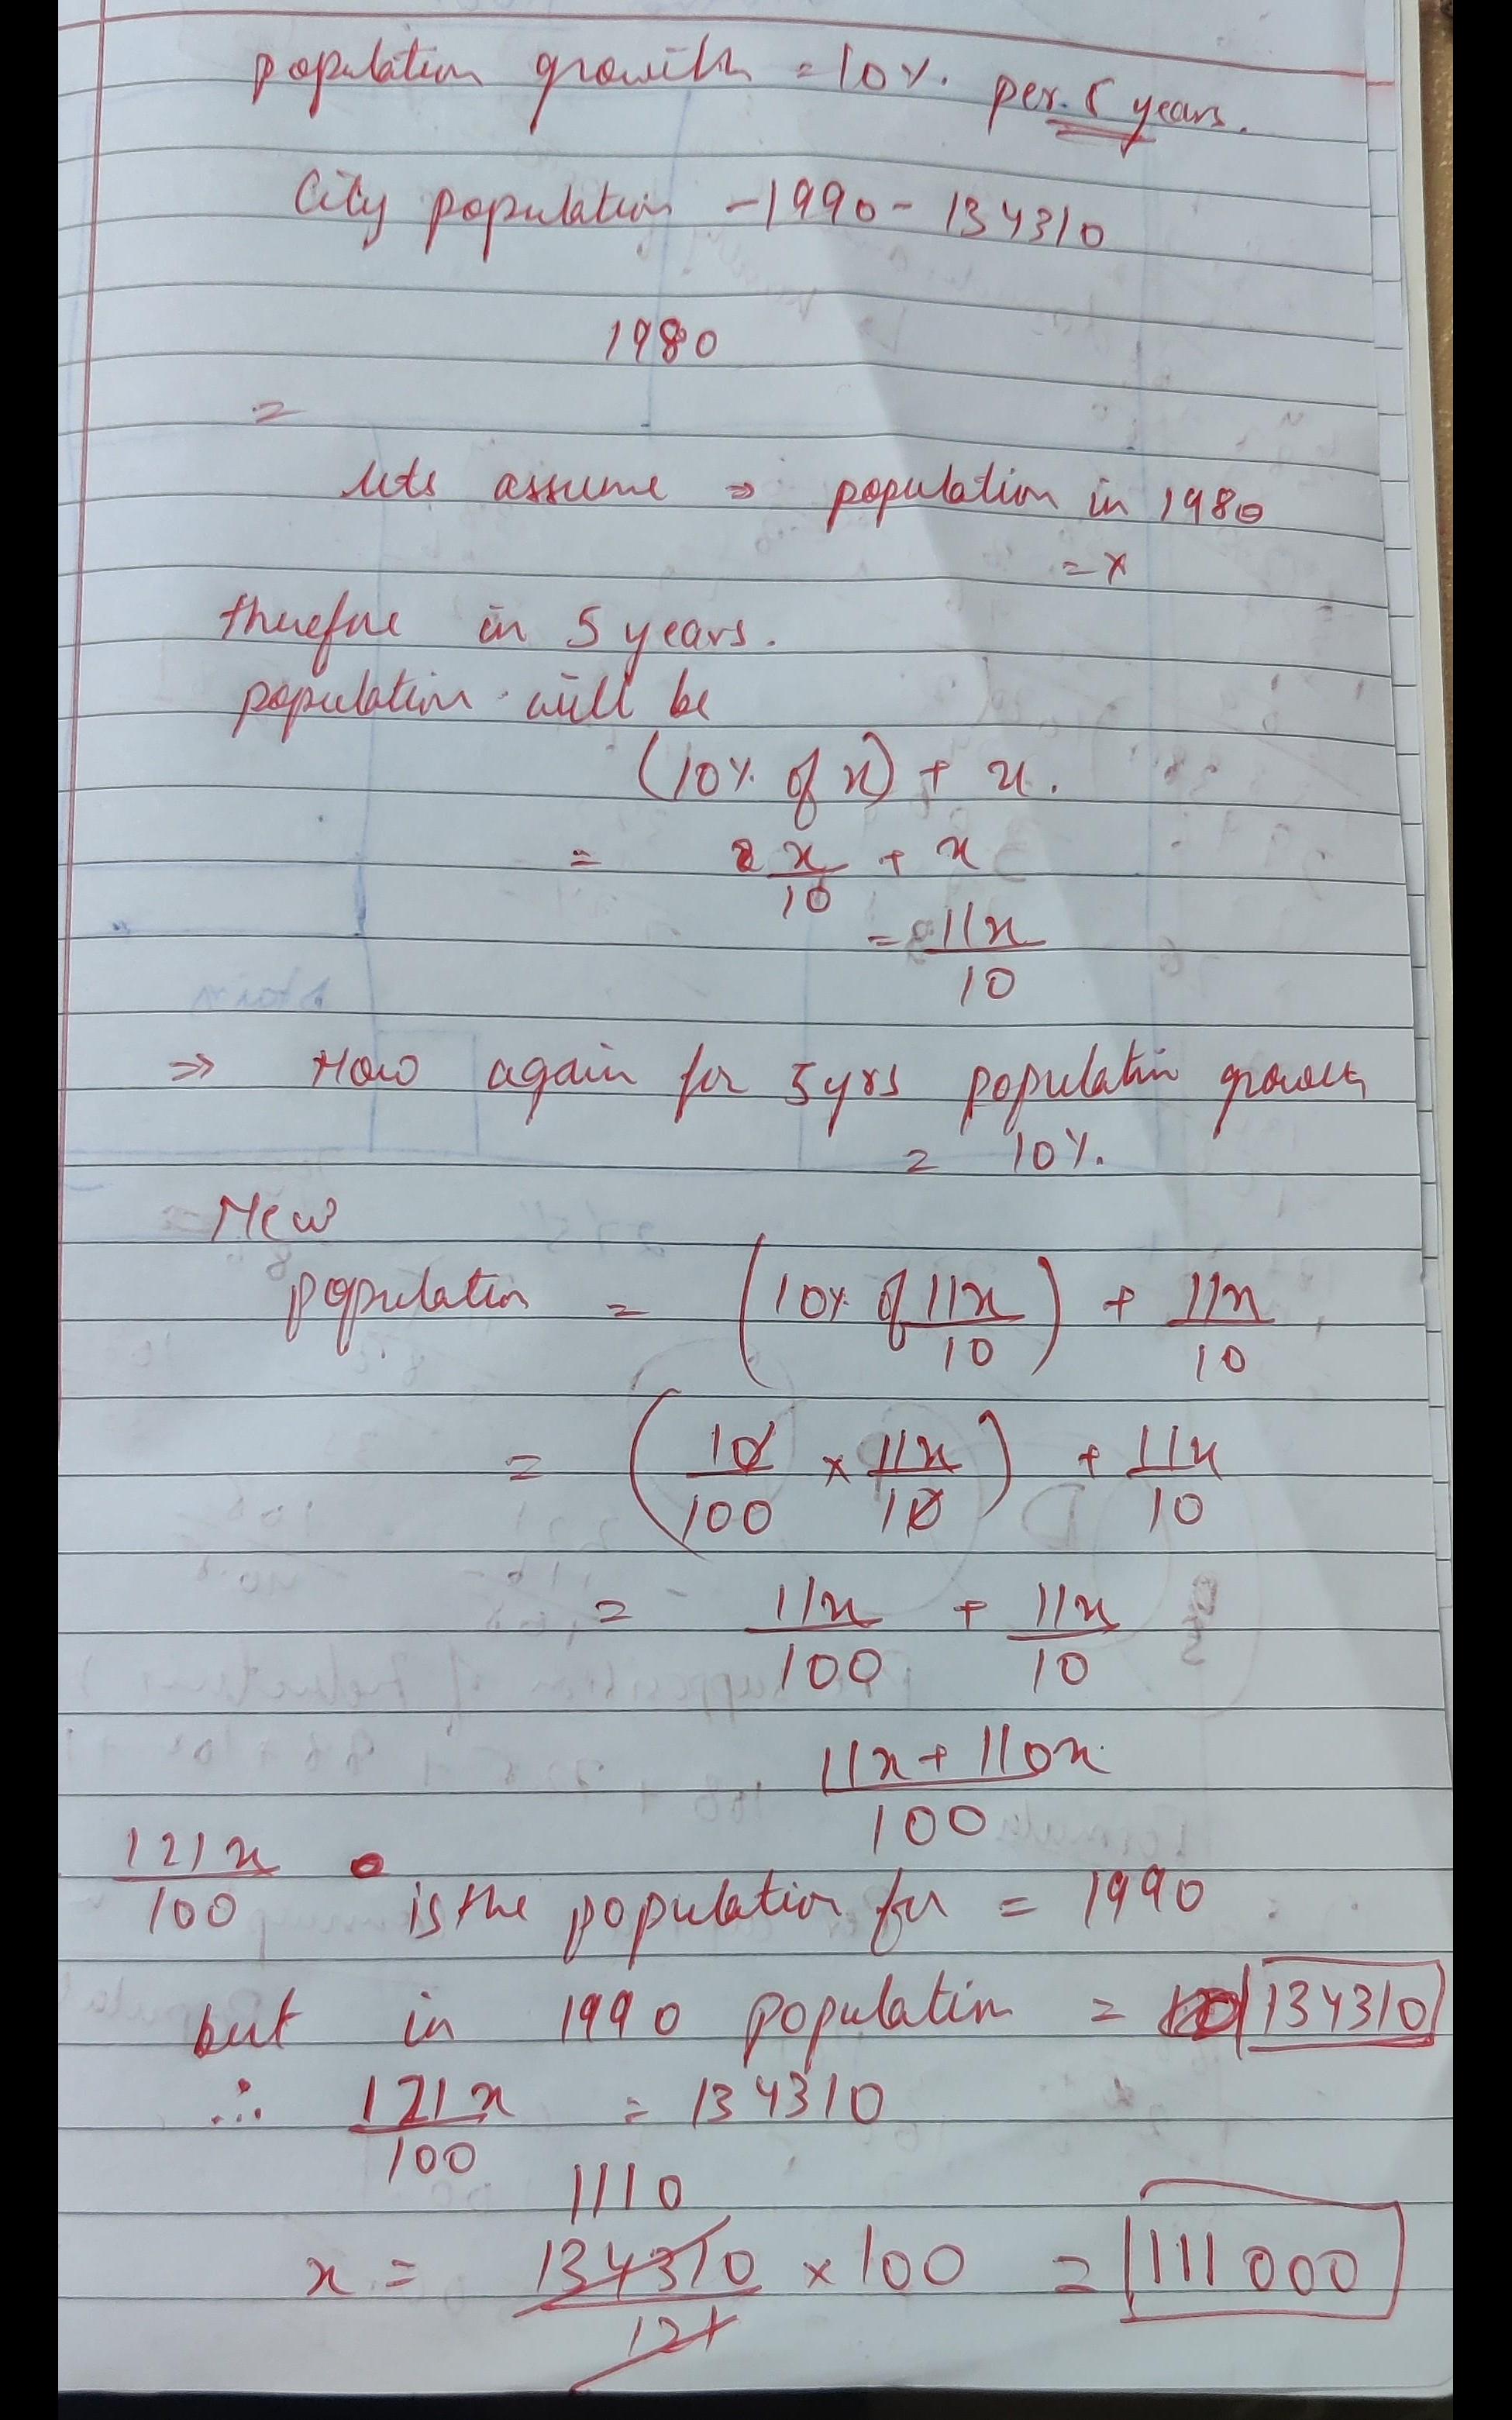 population growth = 10%. per 5 years.
City population - 1990 - 134310
1980
=
lets assume ⇒ population in 1980
= x
therefore in 5 years.
population will be
(10% of x) + x.
= x/10 + x
= 11x/10
⇒ Now again for 5 yrs population growth
= 10%.
New
population = (10% of 11x/10) + 11x/10
= (10/100 × 11x/10) + 11x/10
= 11x/100 + 11x/10
11x + 110x/100
121x/100 is the population for = 1990
but in 1990 population = 134310
∴ 121x/100 = 134310
1110
x = 134310/121 × 100 = 111000